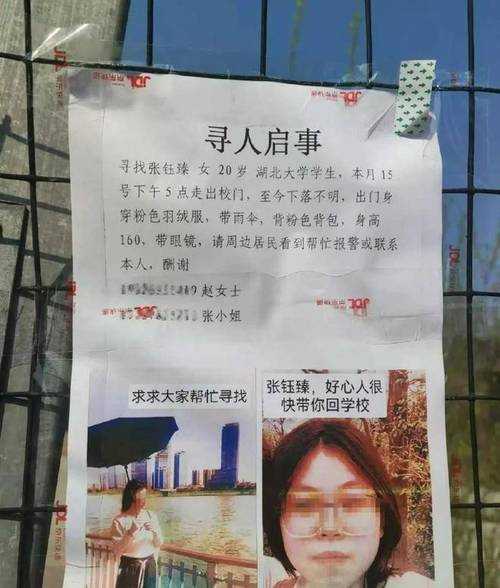 寻人启事
寻找张钰臻 女 20岁 湖北大学学生，本月15
号下午5点走出校门，至今下落不明，出门身
穿粉色羽绒服，带雨伞，背粉色背包，身高
160、带眼镜，请周边居民看到帮忙报警或联系
本人，酬谢
赵女士
张小姐
求求大家帮忙寻找
张钰臻，好心人很
快带你回学校
JDL 京东快递